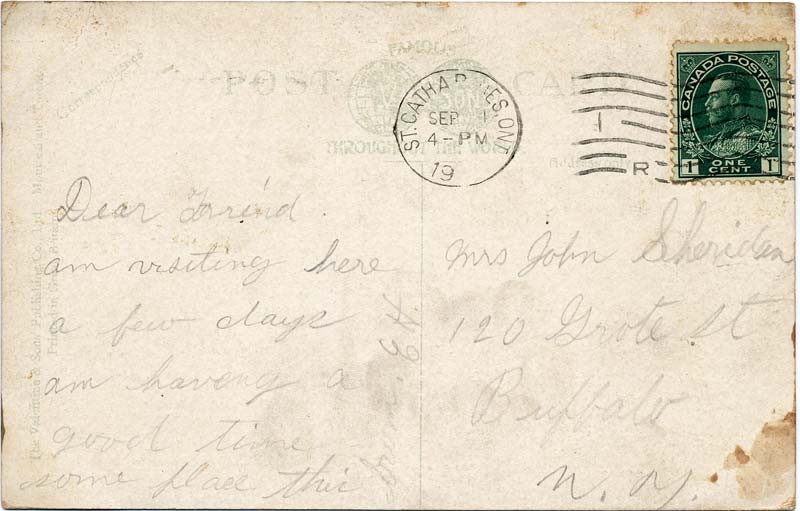 POST CARD
Correspondence
ST. CATHARINES, ONT
SEP 1
4-PM
19
R
CANADA POSTAGE
1 ONE CENT 1
Dear Freind
am visiting here
a few days
am haveng a
good time
some place this
Mrs John Sheridan
120 Grote St
Buffalo
N. Y.
The Valentine & Sons Publishing Co., Ltd.
Printed in Great Britain